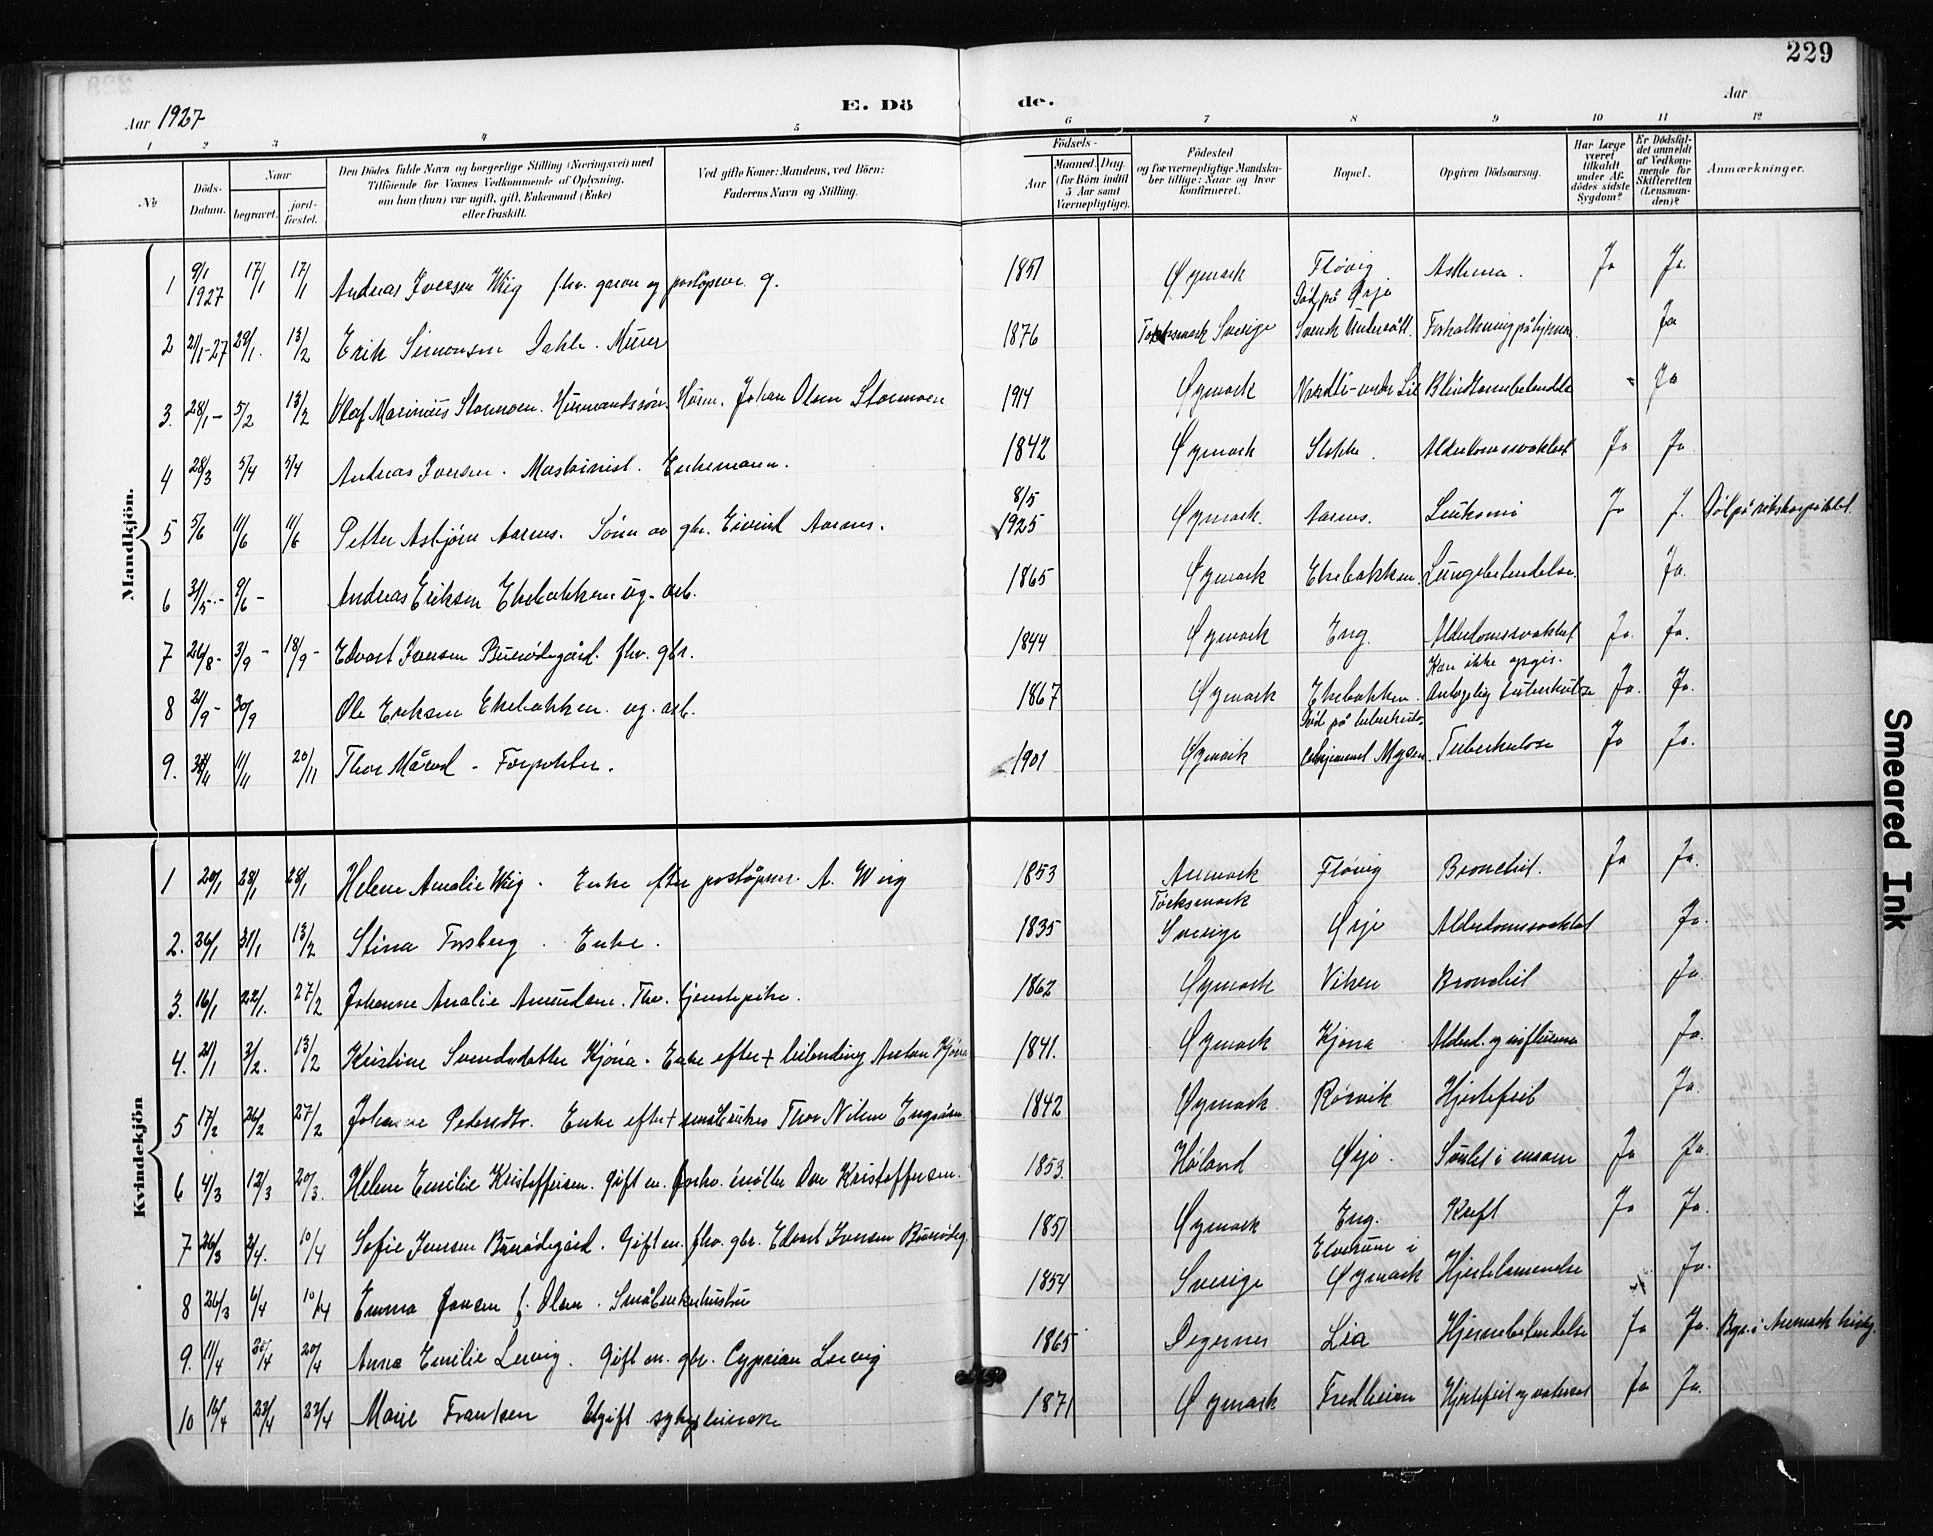 229
Aar 1927 E. Dö de. Aar
1 2 3 4 5 6 7 8 9 10 11 12
№
Döds-Datum.
Naar
begravet.
jord-fæstet.
Den Dödes fulde Navn og borgerlige Stilling (Næringsvei) med
Tilföiende for Voxnes Vedkommende af Oplysning,
om han (hun) var ugift, gift, Enkemand (Enke)
eller fraskilt.
Ved gifte Koner: Mandens, ved Börn:
Faderens Navn og Stilling.
Födsels-
Aar
Maaned. Dag.
(for Börn indtil
5 Aar samt
Værnepligtige).
Födested
og for værnepligtige Mandskaber tillige: Naar og hvor
konfirmeret.
Bopæl.
Opgiven Dödsaarsag.
Har Læge
været
tilkaldt
under Afdödes sidste
Sygdom?
Er Dödsfaldet anmeldt
af Vedkommende for
Skifteretten
(Lensmanden)?
Anmærkninger.
Mandkjön.
1 9/1 1927 17/1 17/1 Andreas Iversen Wiig fhv. og postöpner. g. 1851 Øymark Fløvig. Död på Ørje Asthma. Ja Ja.
2 21/1-27 29/1. 13/2 Erik Simonsen Dahle. Murer 1876 Sverige Svensk Undersått. Forkalkning på hjernen. Ja
3. 28/1- 5/2 13/2 Olaf Marinius Stormoen. Husm. Johan Olsen Stormoen 1914 Øymark under Lie Blindtarmbetendelse " Ja
4 28/3 5/4 5/4 Andreas Iversen. Maskinist. Enkemann. 1842 Øymark Stokke. Alderdomssvakhet Ja Ja.
5 5/6 11/6 11/6 Petter Asbjørn Aarnes. Sønn av gbr. Eivind Aarnes. 8/5 1925 Øymark. Aarnes. Leukemi Ja J. Död på rikshospitalet.
6 31/5- 9/6- Andreas Eriksen Ekebakken ug. arb. 1865 Øymark Ekebakken. Lungebetendelse. Ja.
7 26/8- 3/9- 18/9- Edvart Iversen Buerødegård. fhv. gbr. 1844 Øymark Eng. Alderdomssvakhet Ja. Ja.
8 21/9- 30/9 Ole Eriksen Ekebakken. ug. arb. 1867 Øymark Ekebakken. Kan ikke opgis. Antagelig tuberkulose Ja. Ja.
9. 11/11 20/11 Thor Mårud - Forpakter. 1901 Øymark Död på tuberkulosehjemmet Mysen. Tuberkulose Ja Ja.
Kvindekjön
1 20/1 28/1 28/1 Helene Amalie Wiig. Enke efter postöpner. A. Wiig 1853 Aremark Fløvig Bronchit. Ja Ja.
2. 26/1 31/1 13/2 Stina Forsberg. Enke. 1835 Töcksmark Sverige Ørje Alderdomssvakhet Ja.
3. 16/1 22/1. 27/2 Johanne Amalie Amundsen. Fhv. tjenestepike. 1862 Øymark Viken Bronchit Ja.
4. 21/1 3/2. 13/2 Kristine Svendsdatter Kjöna. Enke efter + Anton Kjöna 1841. Øymark Kjona Alderd. og influensa Ja.
5 17/2 26/2 27/2 Johanne Pedersdtr. Enke efter + småbruker Thor Nilsen 1842 Øymark Rörvik Hjertefeil Ja.
6 4/3 12/3 20/3. Helene Emilie Kristoffersen. Gift m. forhv. möller Ole Kristoffersen. 1853. Höland Ørje. Ja Ja.
7 26/3 2/4. 10/4 Sofie Iversen Buerødegård. Gift m. fhv. gbr. Edvart Iversen Buerødeg. 1851 Øymark Eng. Kreft Ja Ja.
8 26/3 6/4 10/4 Emma Jansen f. Olsen. Småbrukerhustru 1854 Sverige Elverum i Øymark Hjertelammelse Ja.
9. 11/4 20/4 20/4 Anna Emilie Lervig. Gift m. gbr. Cyprian Lervig 1865 Degernes Lia Hjernebetendelse Ja Ja. Bgr. i Aremark
10 16/4 23/4 23/4 Marie Frantsen Ugift syerske 1871 Øymark Fredheim Hjertefeil og vatersot Ja Ja.
Smeared Ink